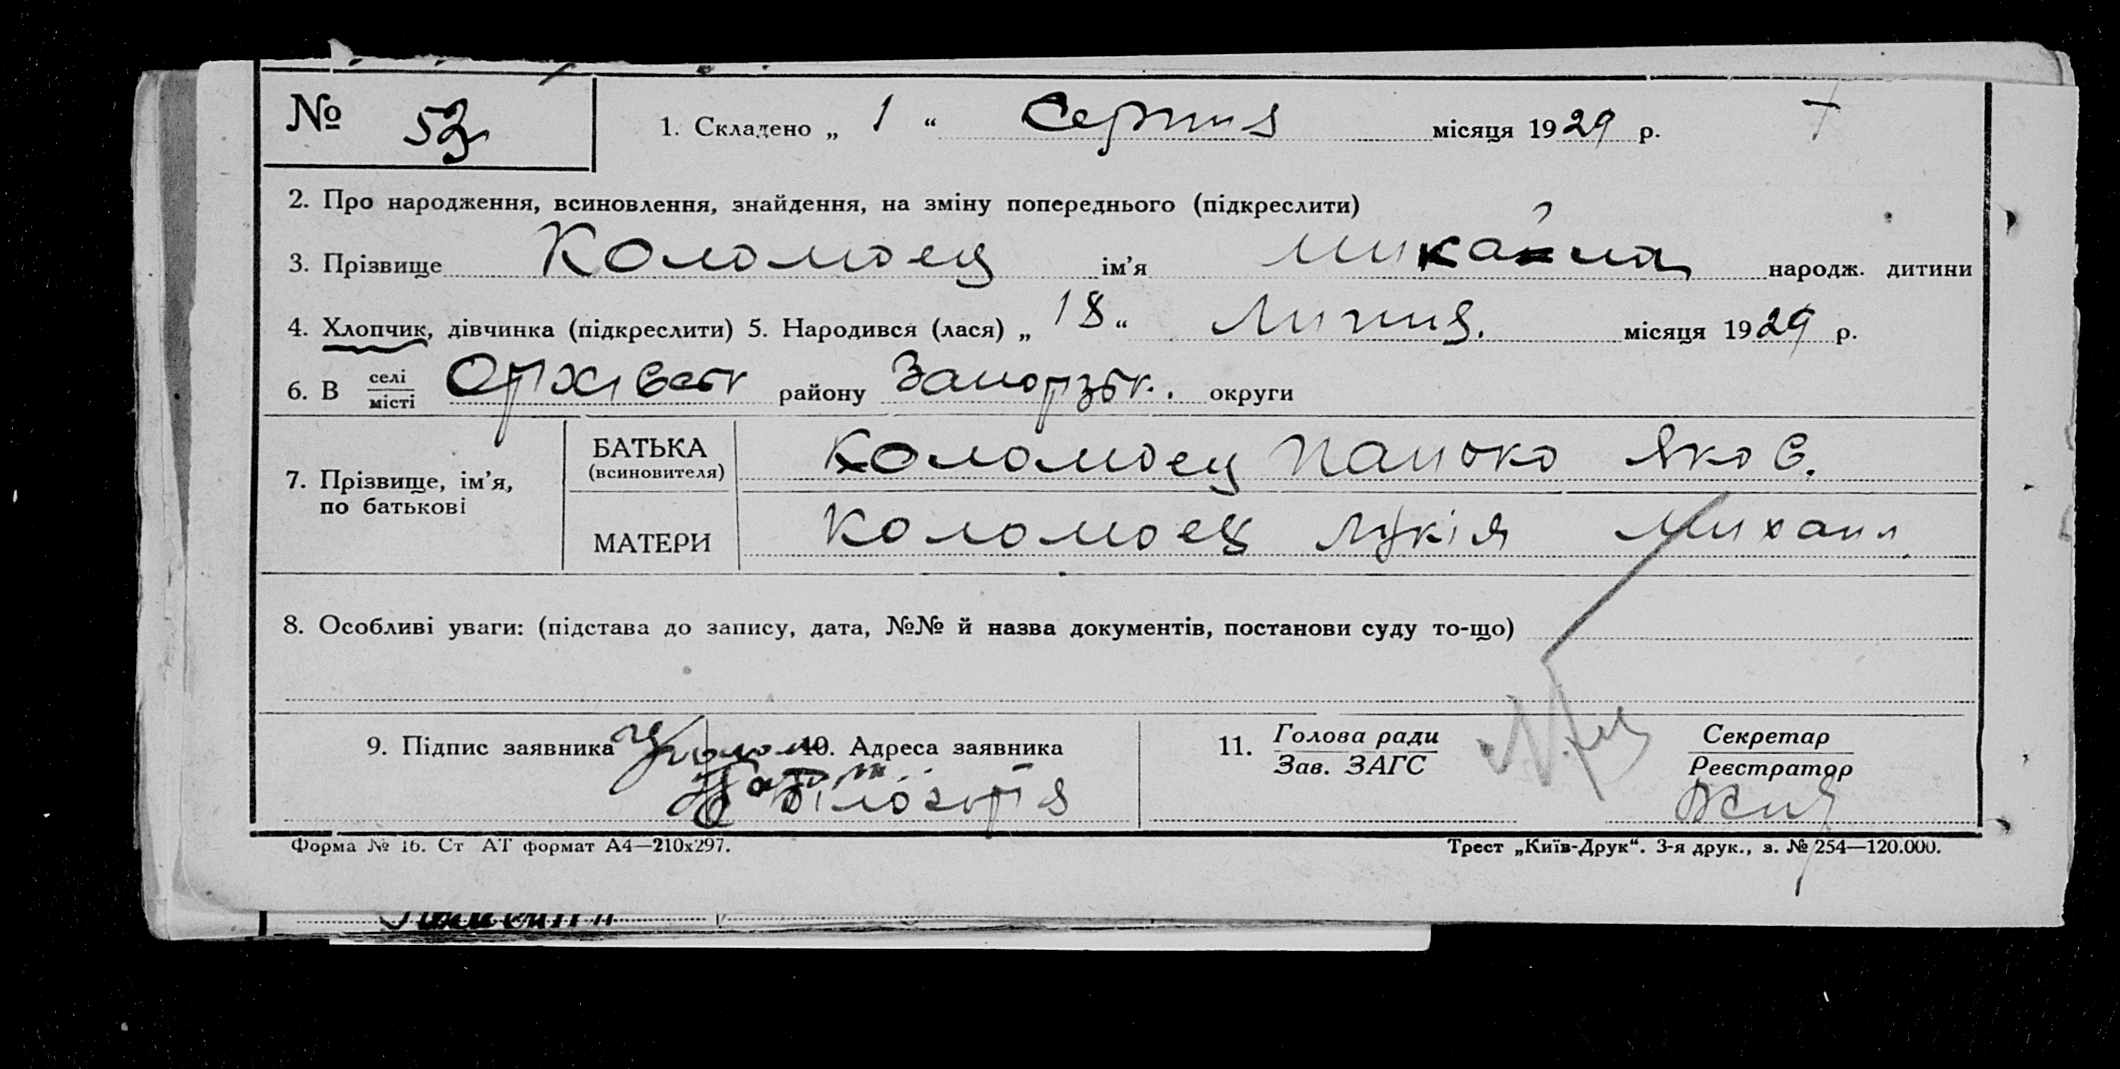 № 53
1. Складено „ 1 “ Серпня місяця 1929 р.
2. Про народження, всиновлення, знайдення, на зміну попереднього (підкреслити)
3. Прізвище Коломоец ім’я народж. дитини
4. Хлопчик, дівчинка (підкреслити) 5. Народився (лася) „ 18 “ Липня. місяця 1929 р.
6. В селі місті району округи
7. Прізвище, ім’я, по батькові
БАТЬКА (всиновителя) Коломоец Панько Яков.
МАТЕРИ Коломоец Лукія Михаил.
8. Особливі уваги: (підстава до запису, дата, №№ й назва документів, постанови суду то-що)
9. Підпис заявника
10. Адреса заявника
11. Голова ради Зав. ЗАГС
Секретар Реєстратор
Форма № 16. Ст АТ формат А4—210х297.
Трест „Київ-Друк“. 3-я друк., з. № 254—120.000.